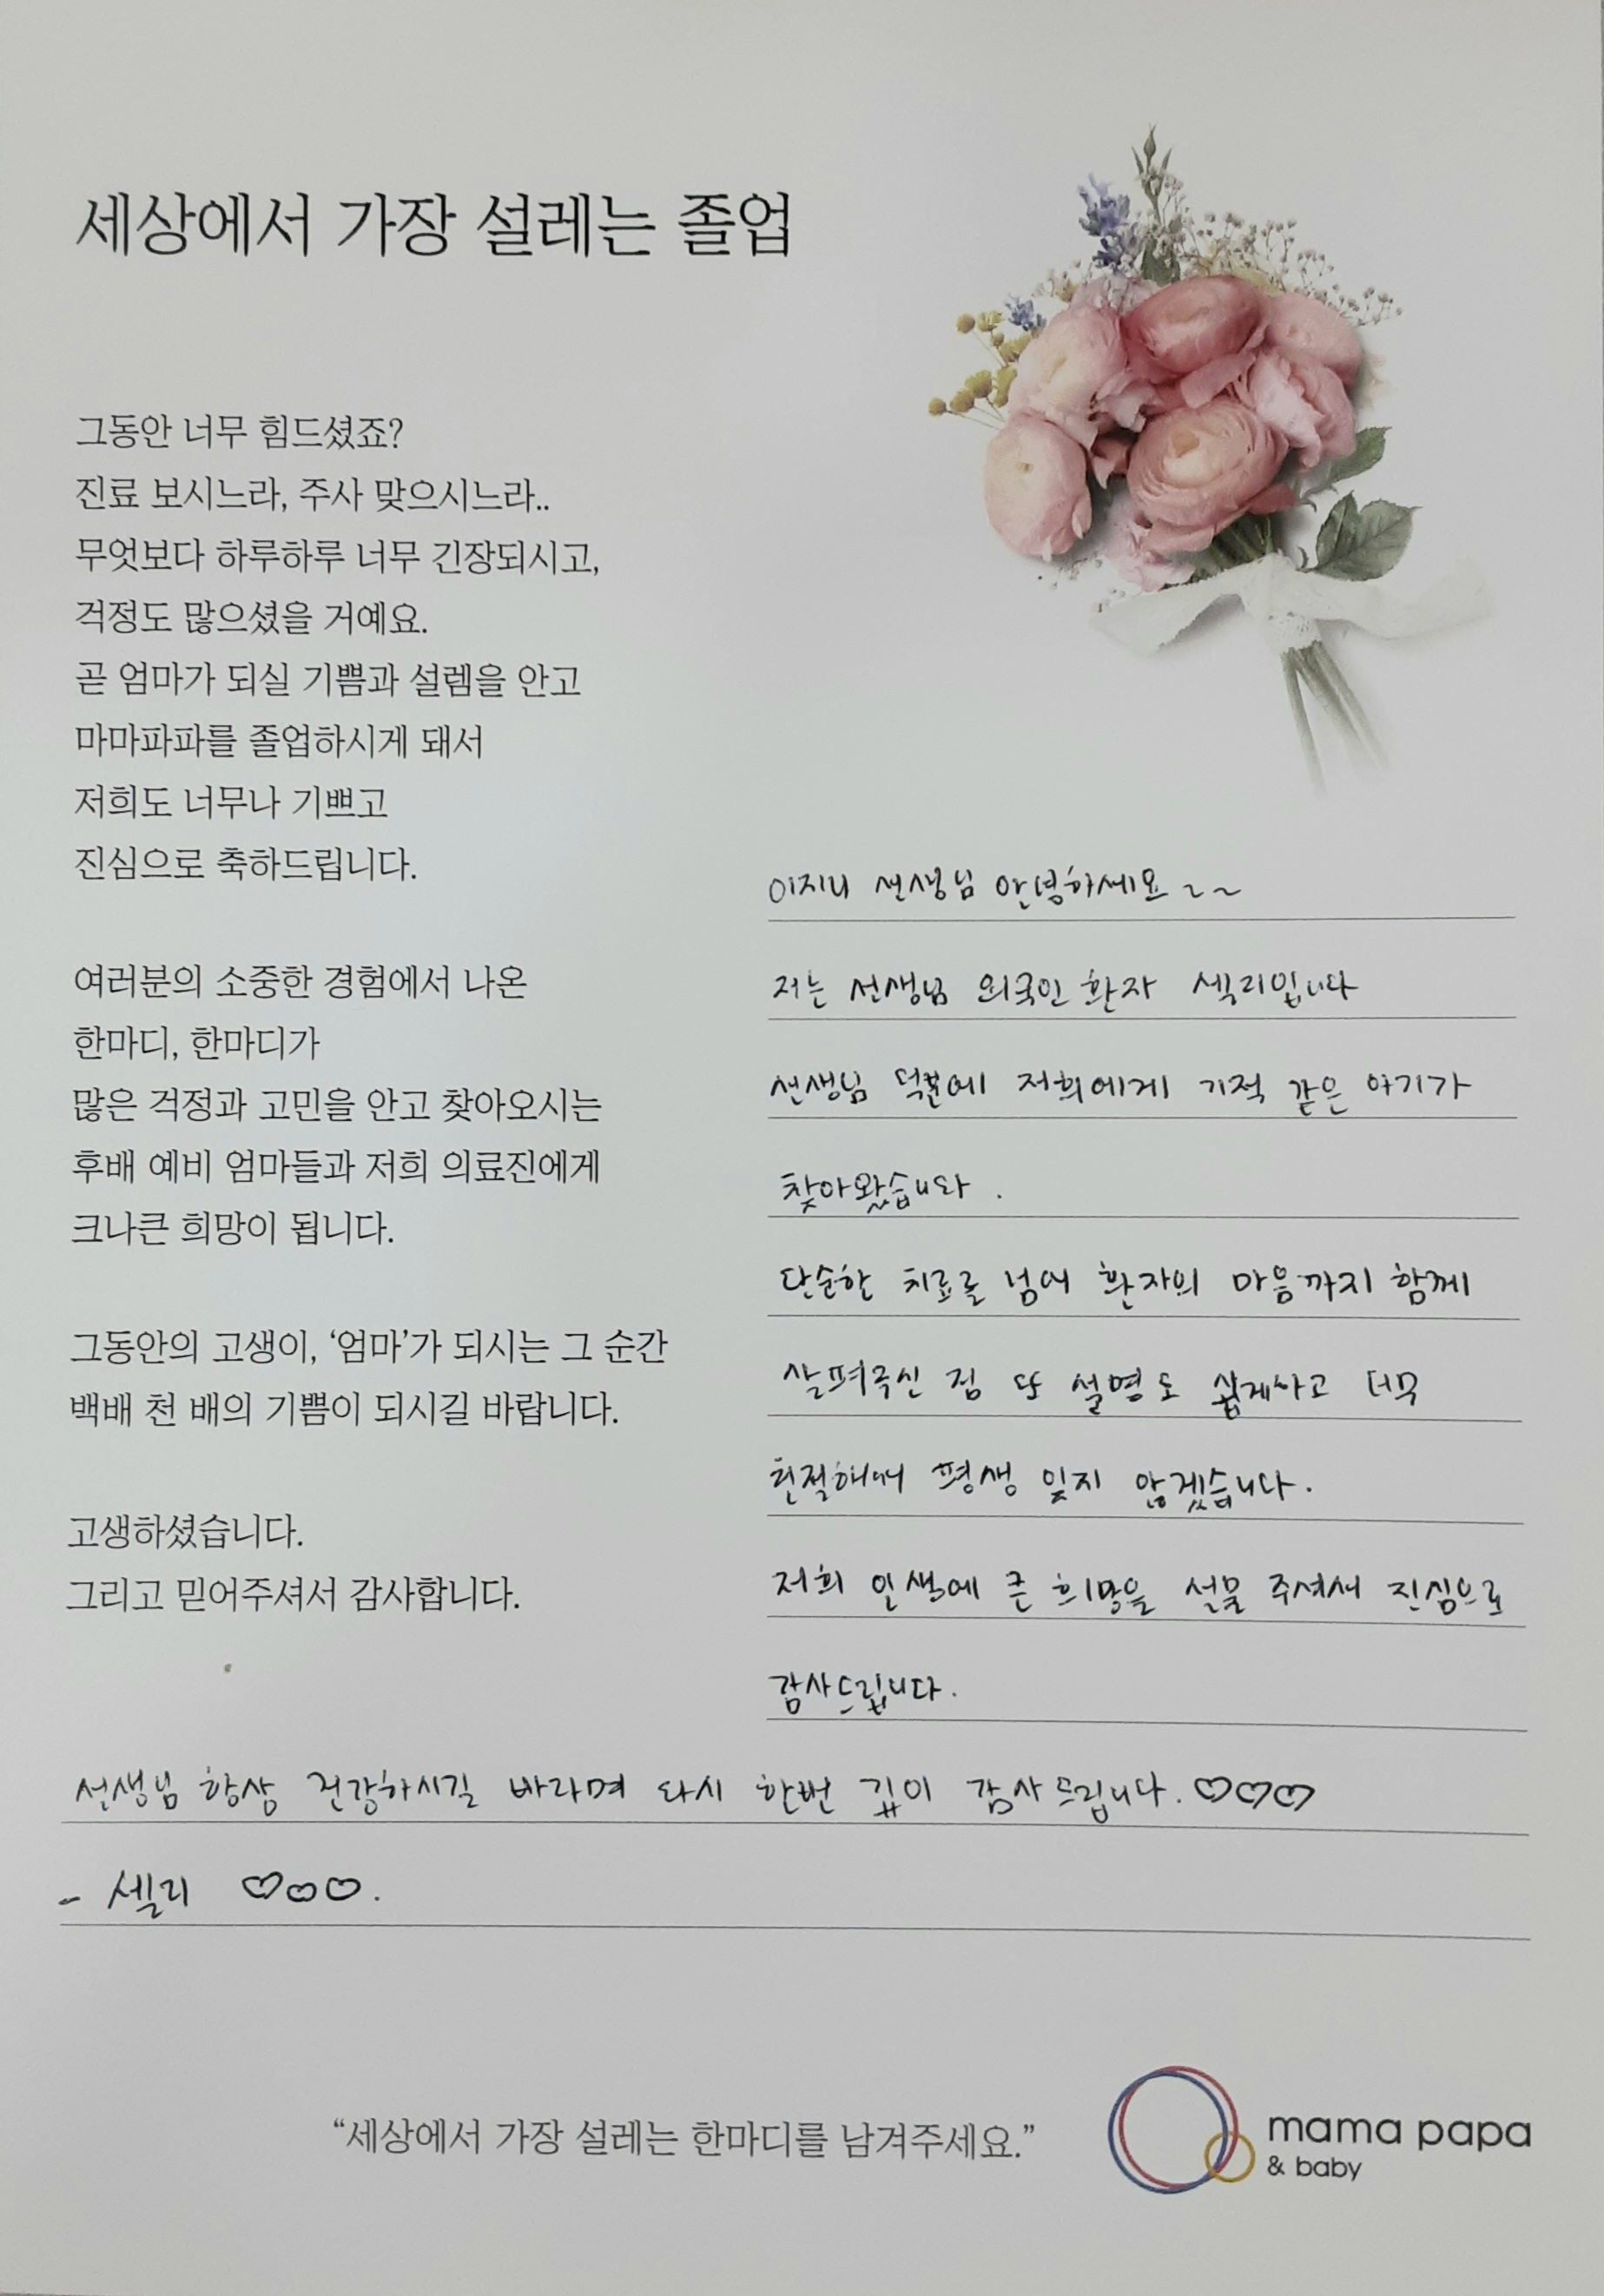 세상에서 가장 설레는 졸업
그동안 너무 힘드셨죠?
진료 보시느라, 주사 맞으시느라..
무엇보다 하루하루 너무 긴장되시고,
걱정도 많으셨을 거예요.
곧 엄마가 되실 기쁨과 설렘을 안고
마마파파를 졸업하시게 돼서
저희도 너무나 기쁘고
진심으로 축하드립니다.
여러분의 소중한 경험에서 나온
한마디, 한마디가
많은 걱정과 고민을 안고 찾아오시는
후배 예비 엄마들과 저희 의료진에게
크나큰 희망이 됩니다.
그동안의 고생이, ‘엄마’가 되시는 그 순간
백배 천 배의 기쁨이 되시길 바랍니다.
고생하셨습니다.
그리고 믿어주셔서 감사합니다.
선생님 안녕하세요~~
저는 선생님 외국인 환자 입니다
선생님 덕분에 저희에게 기적 같은 아기가
찾아왔습니다.
단순한 치료를 넘어 환자의 마음까지 함께
점 또 설명도 쉽게하고 너무
친절해서 평생 잊지 않겠습니다.
저희 인생에 큰 희망을 선물 주셔서 진심으로
감사드립니다.
선생님 항상 건강하시길 바라며 다시 한번 깊이 감사드립니다. ♡♡♡
- 셀리 ♡♡♡.
“세상에서 가장 설레는 한마디를 남겨주세요.”
mama papa
& baby